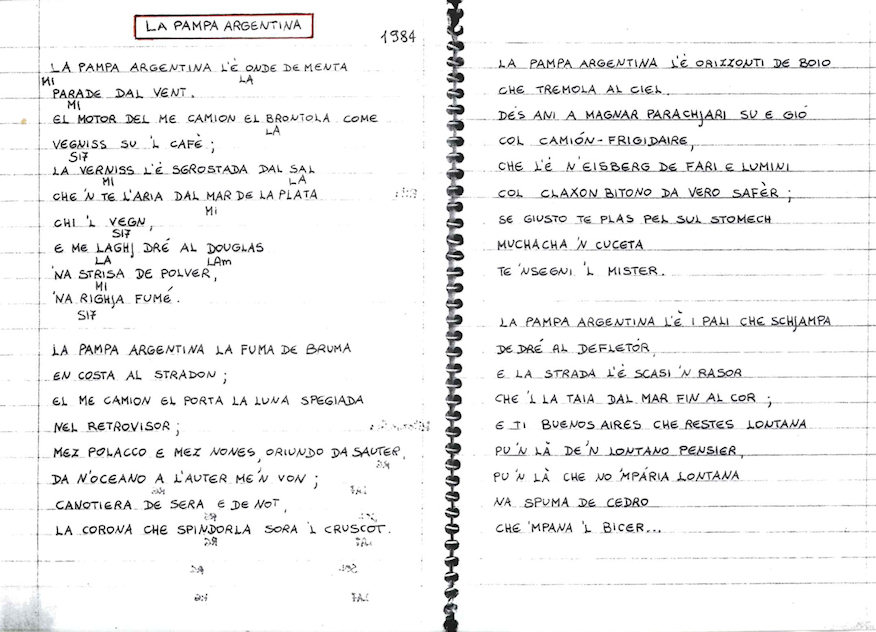 LA PAMPA ARGENTINA
1984
LA PAMPA ARGENTINA L'È ONDE DE MENTA
MI LA
PARADE DAL VENT.
MI
EL MOTOR DEL ME CAMION EL BRONTOLA COME
LA
VEGNISS SU 'L CAFÈ;
SI7
LA VERNISS L'È SGROSTADA DAL SAL
MI LA
CHE 'N TE L'ARIA DAL MAR DE LA PLATA
MI
CHI 'L VEGN,
SI7
E ME LAGHJ DRÉ AL DOUGLAS
LA LAm
'NA STRISA DE POLVER,
MI
'NA RIGHJA FUMÉ.
SI7
LA PAMPA ARGENTINA LA FUMA DE BRUMA
EN COSTA AL STRADON;
EL ME CAMION EL PORTA LA LUNA SPEGIADA
NEL RETROVISOR;
MEZ POLACCO E MEZ NONES, ORIUNDO DA SAUTER,
DA N'OCEANO A L'AUTER ME'N VON;
CANOTIERA DE SERA E DE NOT,
LA CORONA CHE SPINDORLA SORA 'L CRUSCOT.
LA PAMPA ARGENTINA L'È ORIZZONTI DE BOIO
CHE TREMOLA AL CIEL.
DÉS ANI A MAGNAR PARACHJARI SU E GIÓ
COL CAMIÓN-FRIGIDAIRE,
CHE L'È N'EISBERG DE FARI E LUMINI
COL CLAXON BITONO DA VERO SAFÈR;
SE GIUSTO TE PLAS PEL SUL STOMECH
MUCHACHA 'N CUCETA
TE 'NSEGNI 'L MISTER.
LA PAMPA ARGENTINA L'È I PALI CHE SCHJAMPA
DE DRÉ AL DEFLETÓR,
E LA STRADA L'È SCASI 'N RASOR
CHE 'L LA TAIA DAL MAR FIN AL COR;
E TI BUENOS AIRES CHE RESTES LONTANA
PU 'N LÀ DE'N LONTANO PENSIER,
PU 'N LÀ CHE NO 'MPÁRIA LONTANA
NA SPUMA DE CEDRO
CHE 'MPANA 'L BICER...